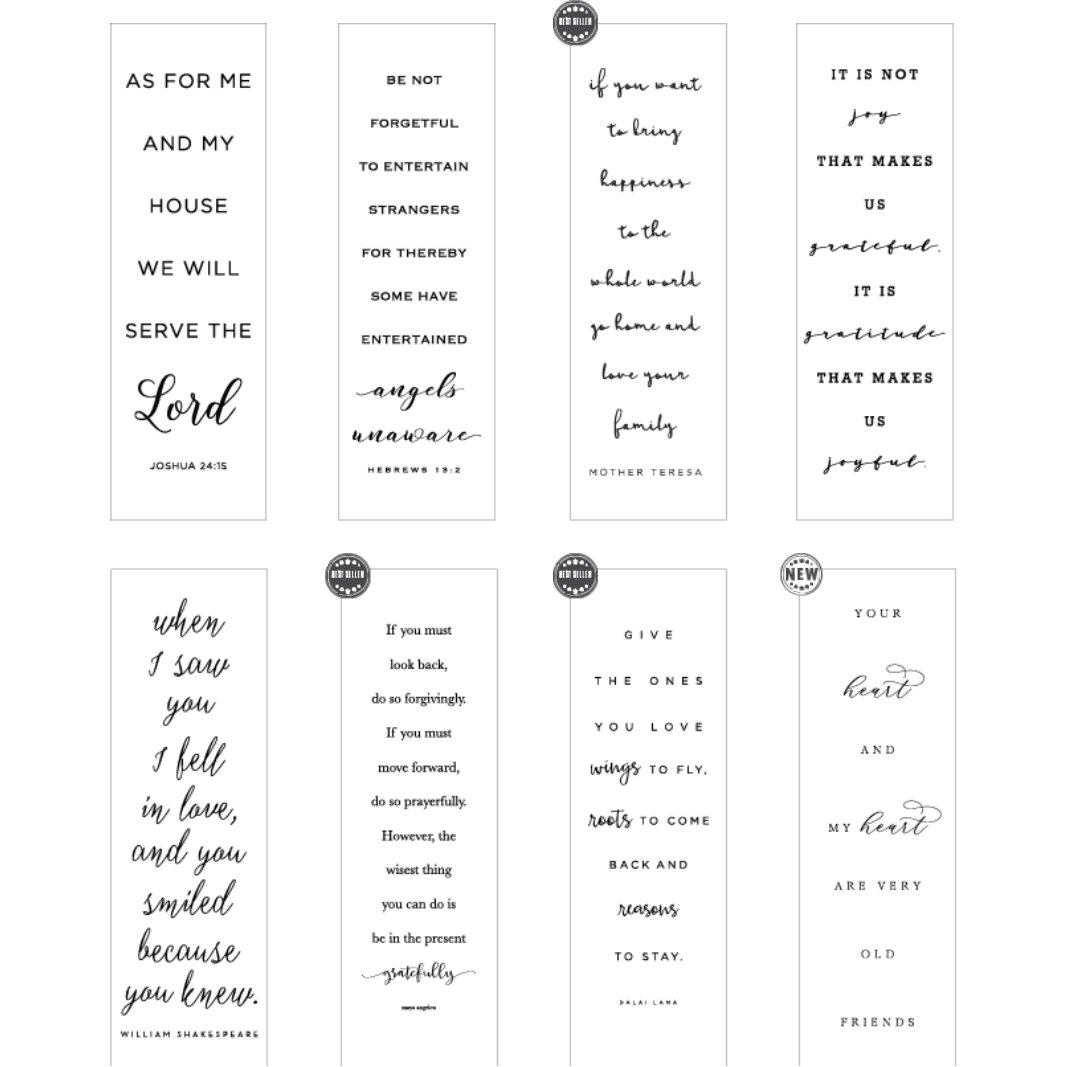 AS FOR ME
AND MY
HOUSE
WE WILL
SERVE THE
Lord
JOSHUA 24:15
BE NOT
FORGETFUL
TO ENTERTAIN
STRANGERS
FOR THEREBY
SOME HAVE
ENTERTAINED
angels
unaware
HEBREWS 13:2
BEST SELLER
if you want
to bring
happiness
to the
whole world
go home and
love your
family
MOTHER TERESA
IT IS NOT
joy
THAT MAKES
US
grateful.
IT IS
gratitude
THAT MAKES
US
joyful.
when
I saw
you
I fell
in love,
and you
smiled
because
you knew.
WILLIAM SHAKESPEARE
BEST SELLER
If you must
look back,
do so forgivingly.
If you must
move forward,
do so prayerfully.
However, the
wisest thing
you can do is
be in the present
gratefully
maya angelou
BEST SELLER
GIVE
THE ONES
YOU LOVE
wings TO FLY,
roots TO COME
BACK AND
reasons
TO STAY.
DALAI LAMA
NEW
YOUR
heart
AND
MY heart
ARE VERY
OLD
FRIENDS